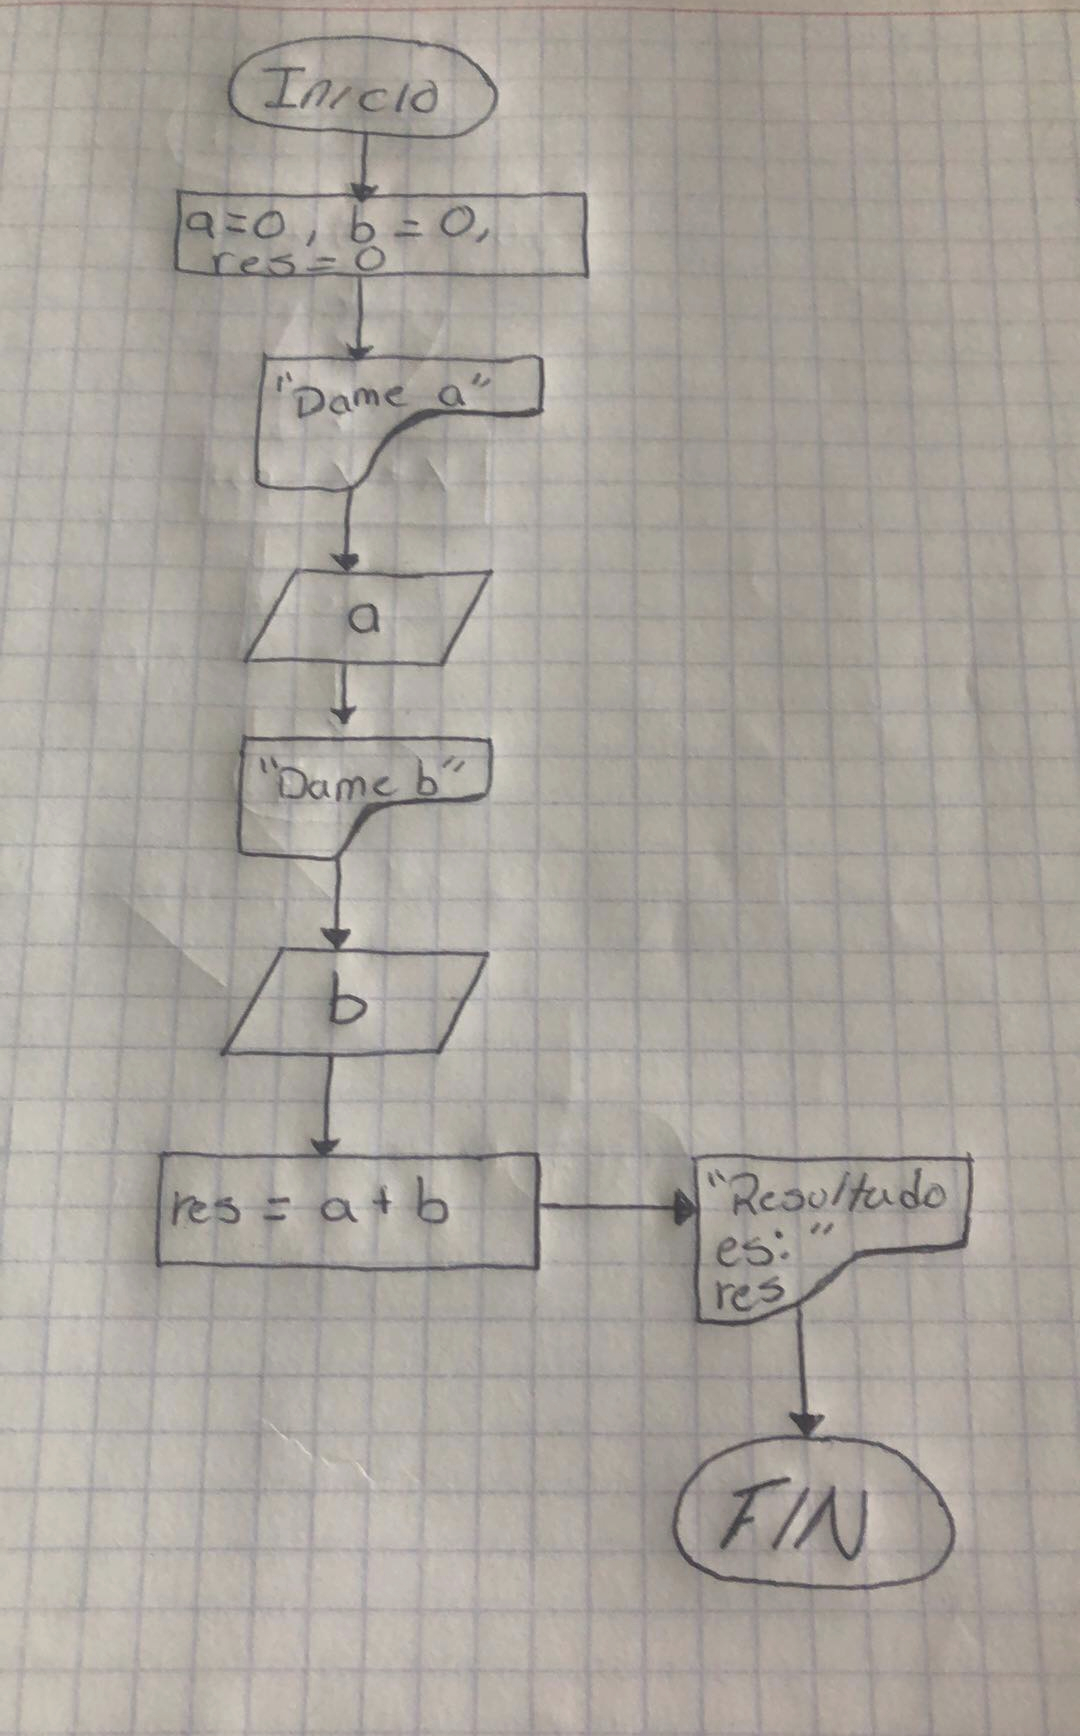 Inicio
a=0, b=0,
res=0
"Dame a"
a
"Dame b"
b
res = a+b
"Resultado
es: "
res
FIN